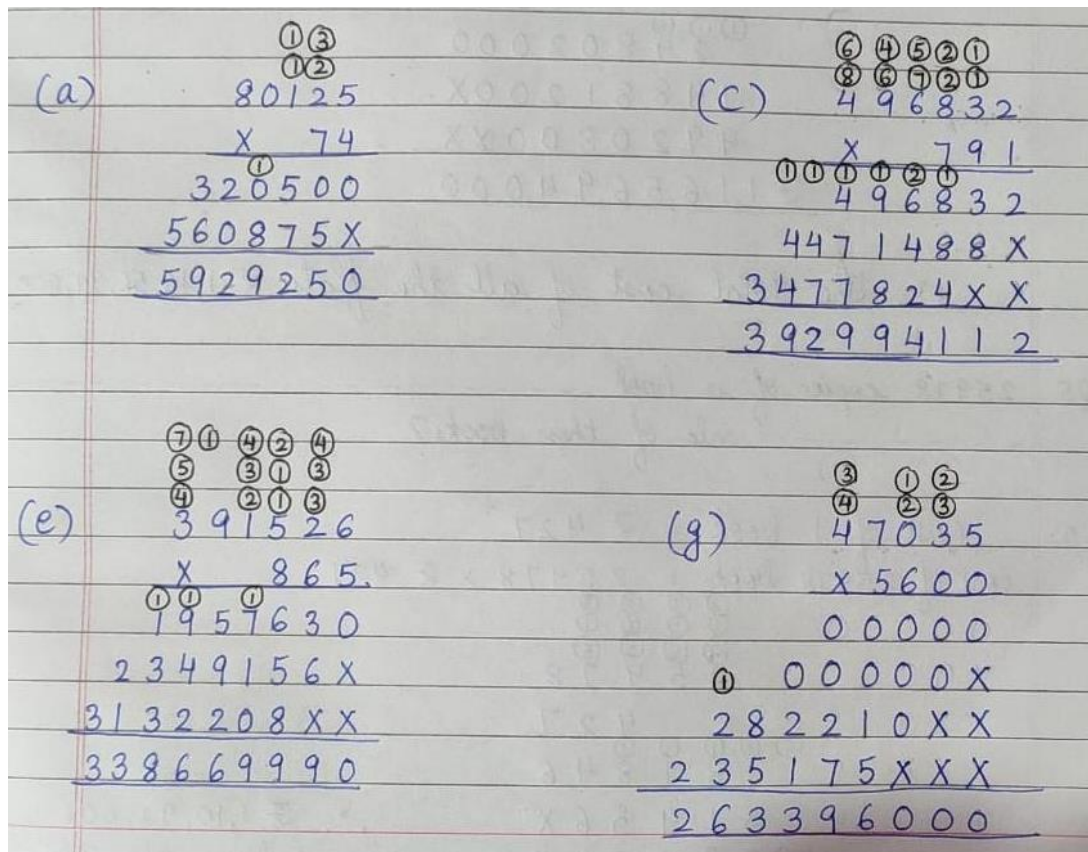 ① ③
① ②
(a) 80125
X 74
①
320500
560875X
5929250
⑥ ④ ⑤ ② ①
⑧ ⑥ ⑦ ② ①
(C) 496832
X 791
① ① ① ① ② ①
496832
4471488X
3477824XX
392994112
⑦ ① ④ ② ④
⑤ ③ ① ③
④ ② ① ③
(e) 391526
X 865.
① ① ①
1957630
2349156X
3132208XX
338669990
③ ① ②
④ ② ③
(g) 47035
X 5600
00000
① 00000X
282210XX
235175XXX
263396000